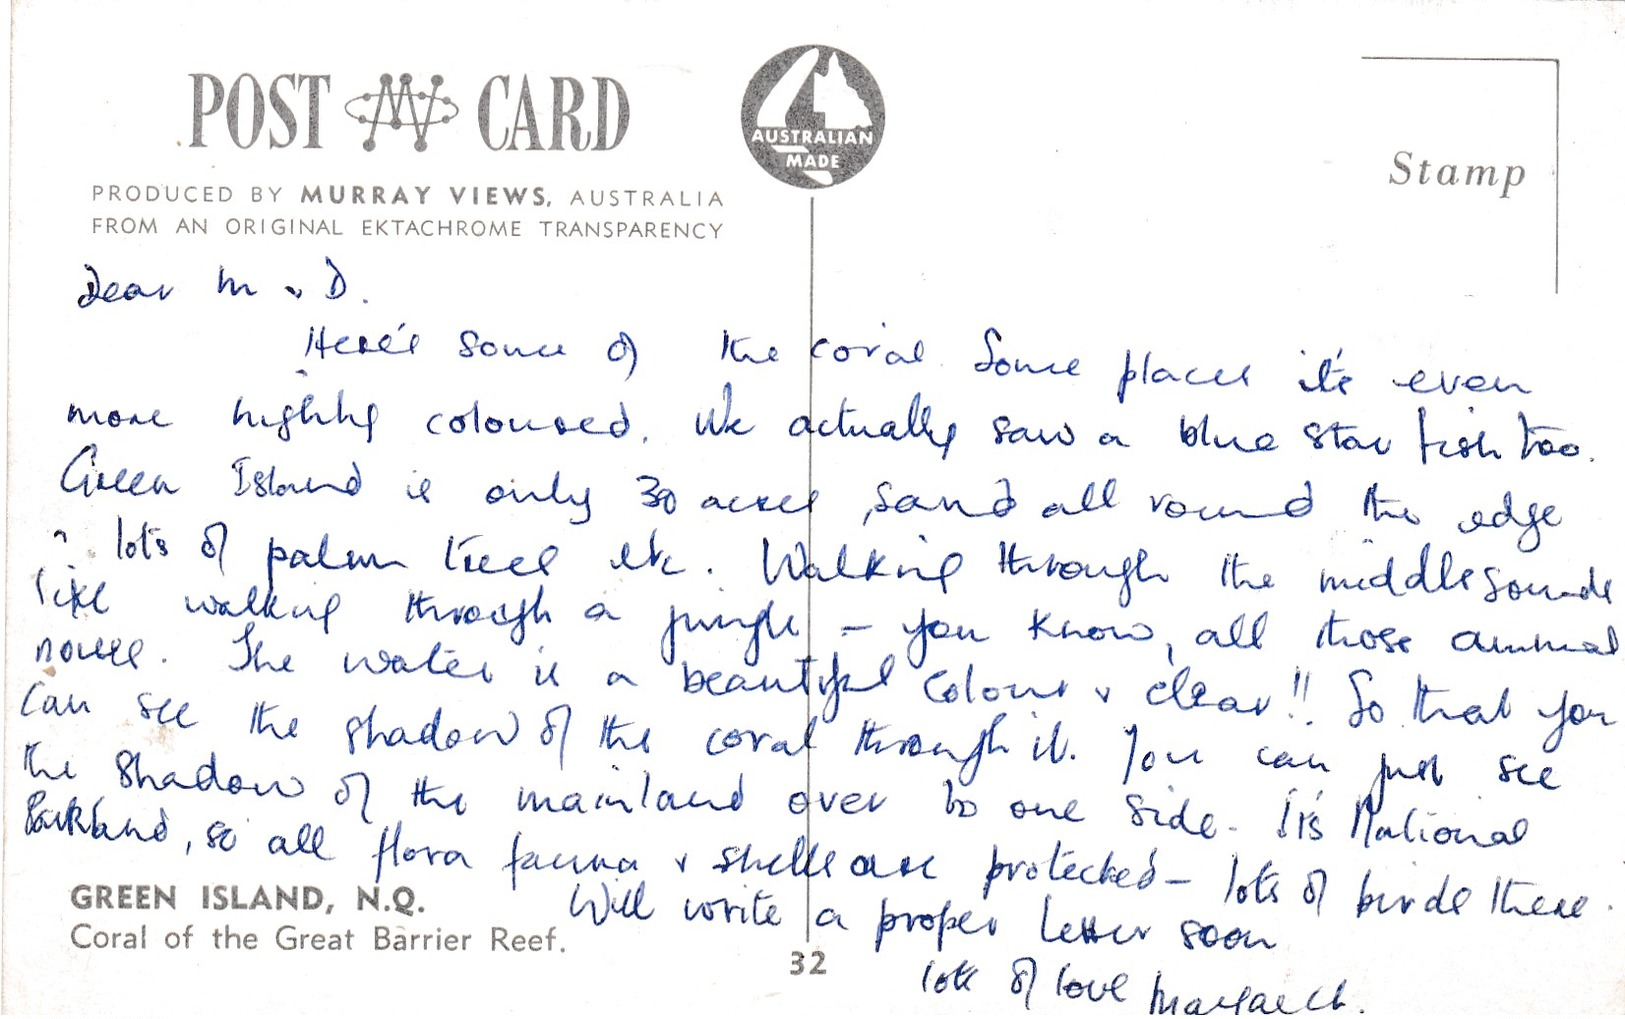 POST CARD
AUSTRALIAN
MADE
PRODUCED BY MURRAY VIEWS, AUSTRALIA
FROM AN ORIGINAL EKTACHROME TRANSPARENCY
Stamp
Dear M & D.
Here's some of the coral. Some places it's even
more highly coloured. We actually saw a blue star fish too.
Green Island is only 30 acres, sand all round the edge
& lots of palm trees etc. Walking through the middle sounds
like walking through a jungle – you know, all those animal
noises. The water is a beautiful colour & clear!! So that you
can see the shadow of the coral through it. You can just see
the shadow of the mainland over to one side. It's National
Parkland, so all flora fauna & shells are protected – lots of birds there.
Will write a proper letter soon
lots of love Margaret.
GREEN ISLAND, N.Q.
Coral of the Great Barrier Reef.
32